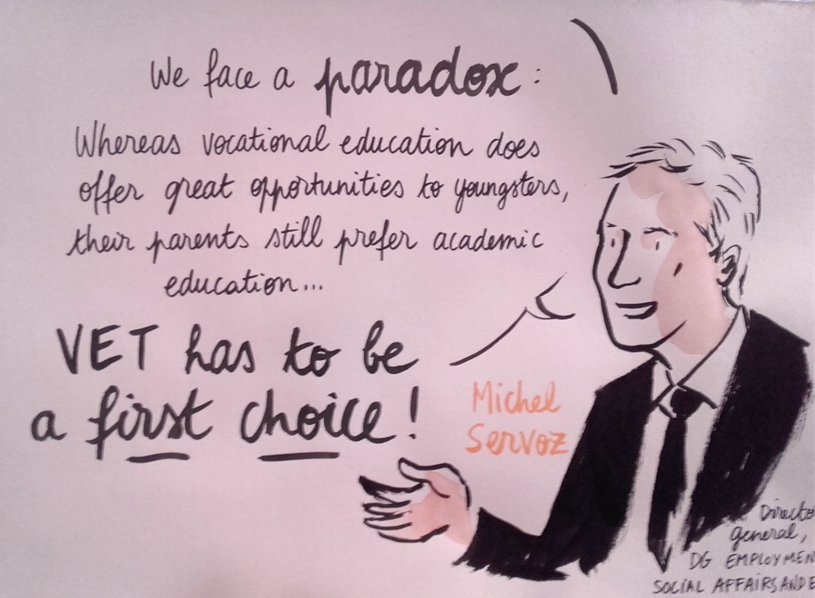 We face a paradox:
Whereas vocational education does
offer great opportunities to youngsters,
their parents still prefer academic
education...
VET has to be
a first choice!
Michel
Servoz
Directo
general,
DG EMPLOYMEN
SOCIAL AFFAIRS AND E